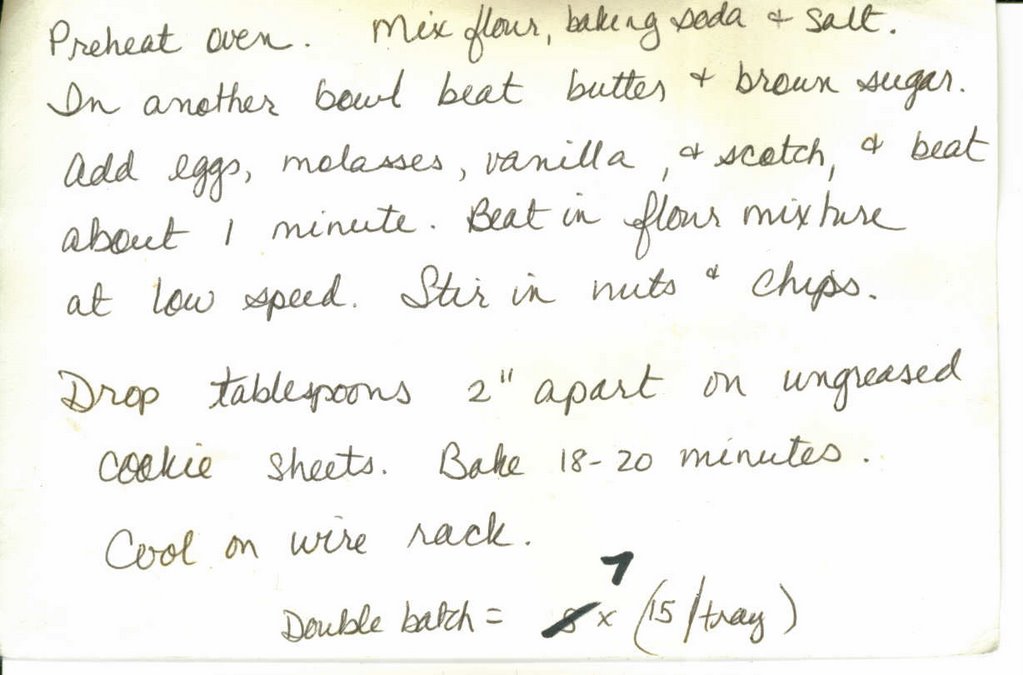 Preheat oven. Mix flour, baking soda & salt.
In another bowl beat butter & brown sugar.
Add eggs, molasses, vanilla, & scotch, & beat
about 1 minute. Beat in flour mixture
at low speed. Stir in nuts & chips.
Drop tablespoons 2" apart on ungreased
cookie sheets. Bake 18-20 minutes.
Cool on wire rack.
7
Double batch = x (15/tray)